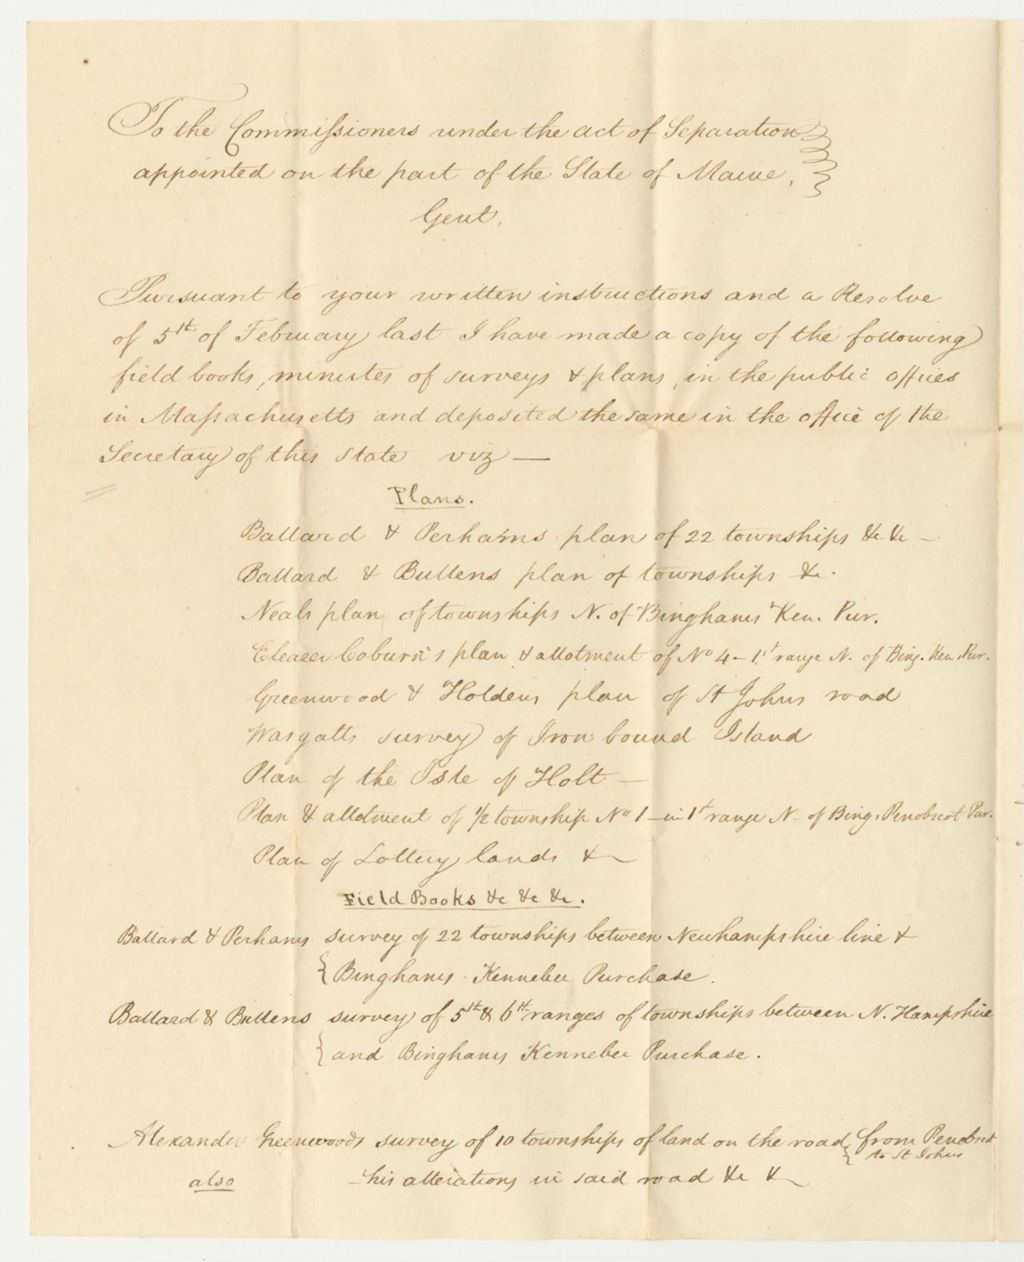 To the Commissioners under the act of Separation
appointed on the part of the State of Maine,
Gent.
Pursuant to your written instructions and a Resolve
of 5th of February last I have made a copy of the following
field books, minutes of surveys & plans, in the public offices
in Massachusetts and deposited the same in the office of the
Secretary of this State viz —
Plans.
Ballard & Perhams plan of 22 townships &c &c —
Ballard & Bullens plan of townships &c.
Neals plan of townships N. of Binghams Ken. Pur.
Eleazer Coburn's plan & allotment of No 4 - 1st range N. of Bing. Ken. Pur.
Greenwood & Holdens plan of St Johns road
Wasgatts survey of Iron bound Island
Plan of the Isle of Holt —
Plan & allotment of 1/2 township No 1 — in 1st range N. of Bing. Penobscot Pur.
Plan of Lottery lands &c
Field Books &c &c &c.
Ballard & Perhams survey of 22 townships between Newhampshire line &
{Binghams Kennebec Purchase.
Ballard & Bullens survey of 5th & 6th ranges of townships between N. Hampshire
{and Binghams Kennebec Purchase.
Alexander Greenwoods survey of 10 townships of land on the road from Penobscot
{to St Johns
also — his alterations in said road &c &c